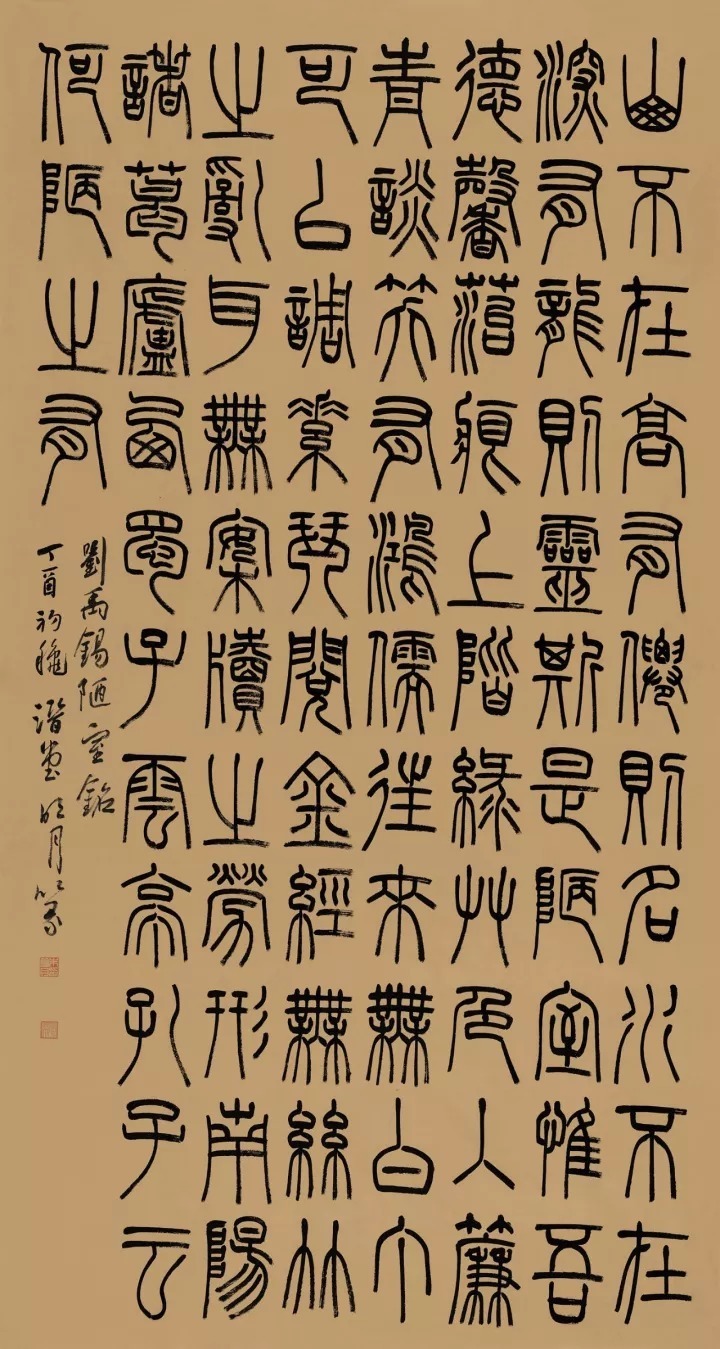 山不在高有僊則名水不在
深有龍則靈斯是陋室惟吾
德馨菭痕上階綠艸色入簾
青談笑有鴻儒往來無白丁
可以調素琴閱金經無絲竹
之亂耳無案牘之勞形南陽
諸葛廬西蜀子雲亭孔子云
何陋之有
劉禹錫陋室銘
丁酉初穐潛堂明月篆